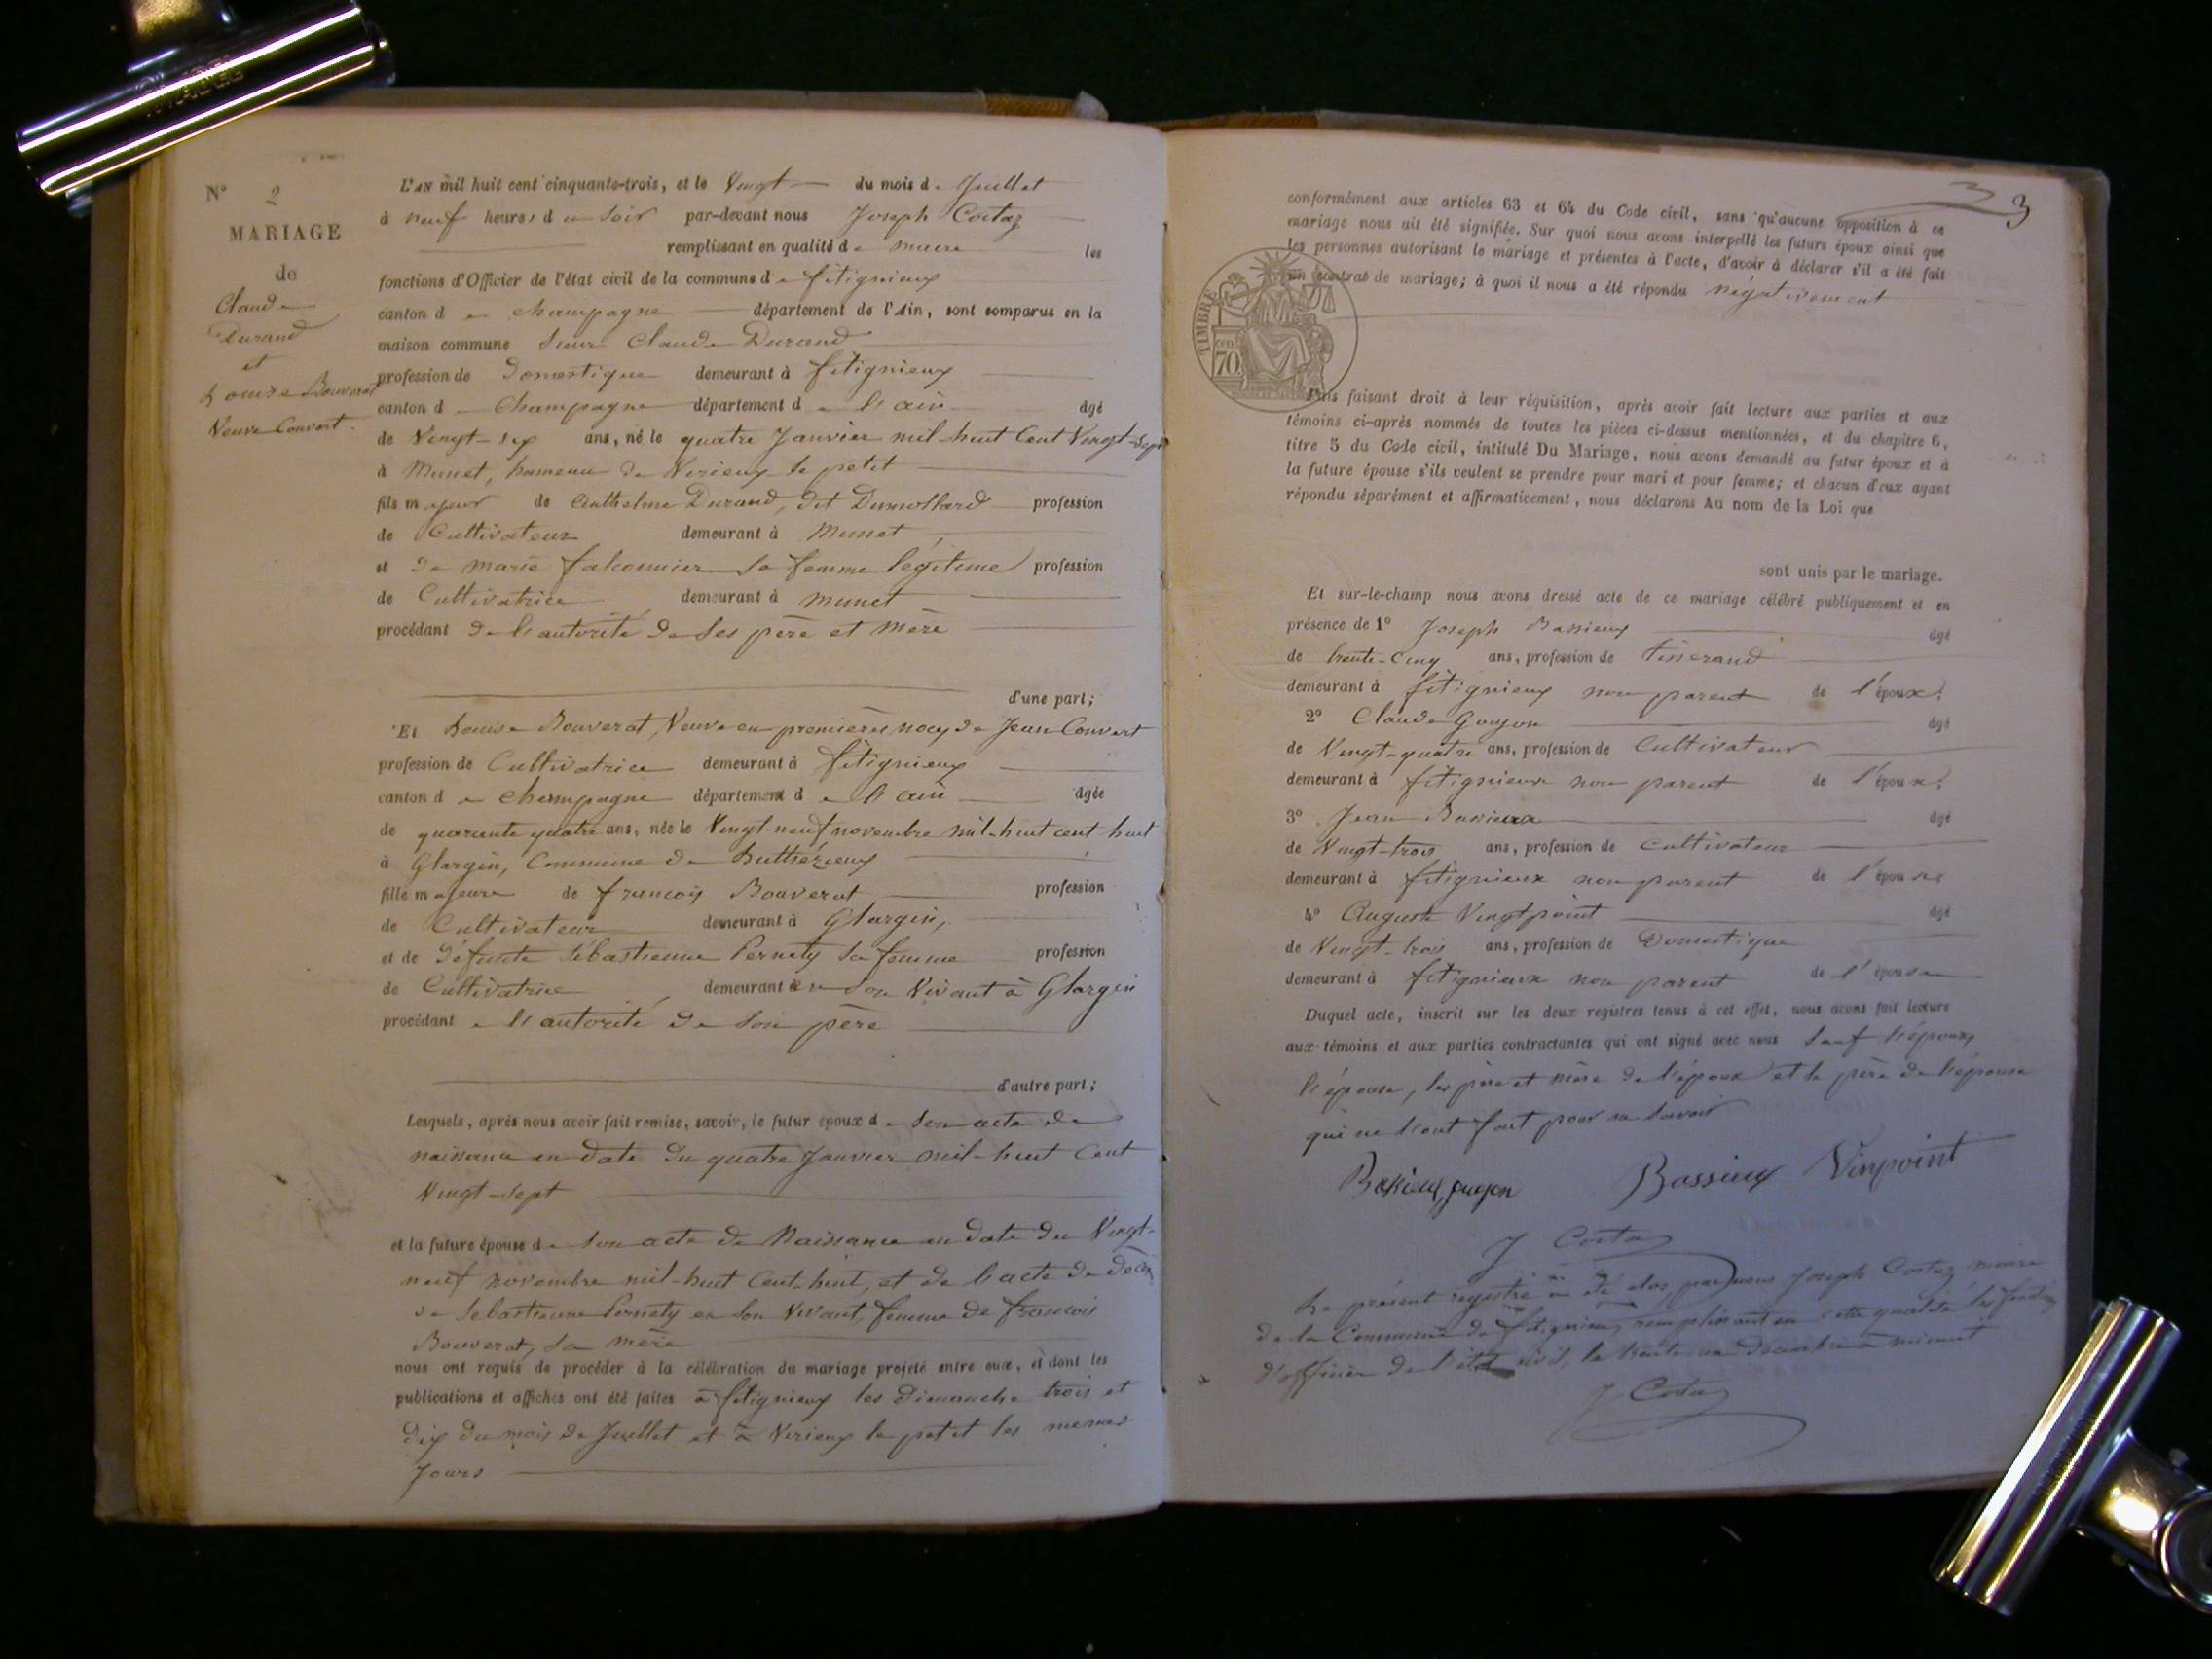 N° 2
MARIAGE
de
Claude
Durand
et
Louise Bouverat
Veuve Convert.
L'AN mil huit cent cinquante-trois, et le Vingt du mois de Juillet
à neuf heures du soir par-devant nous Joseph Costaz
remplissant en qualité de maire les
fonctions d'Officier de l'état civil de la commune de fitignieux
canton de champagne département de l'Ain, sont comparus en la
maison commune sieur Claude Durand
profession de Domestique demeurant à fitignieux
canton de Champagne département de l'ain âgé
de Vingt-six ans, né le quatre Janvier mil-huit Cent Vingt-sept
à Munet, hameau de Virieux le petit
fils majeur de Anthelme Durand, dit Dumollard profession
de Cultivateur demeurant à Munet
et de marie falconnier sa femme légitime profession
de Cultivatrice demeurant à munet
procédant de l'autorité de ses père et mère
d'une part;
Et Louise Bouverat, Veuve en premières noces de Jean Convert
profession de Cultivatrice demeurant à fitignieux
canton de champagne département de l'ain âgée
de quarante quatre ans, née le Vingt-neuf novembre mil-huit cent huit
à Glargin, Commune de Belmont
fille majeure de françois Bouverat profession
de Cultivateur demeurant à Glargin,
et de défunte Sébastienne Pernety sa femme profession
de Cultivatrice demeurant en son Vivant à Glargin
procédant de l'autorité de son père
d'autre part;
Lesquels, après nous avoir fait remise, savoir, le futur époux de son acte de
naissance en date du quatre Janvier mil-huit Cent
Vingt-sept
et la future épouse de son acte de Naissance en date du Vingt-
neuf novembre mil-huit Cent-huit, et de l'acte de décès
de Sebastienne Pernety en son Vivant, femme de francois
Bouverat, sa mère
nous ont requis de procéder à la célébration du mariage projeté entre eux, et dont les
publications et affiches ont été faites à fitignieux les dimanche trois et
dix du mois de Juillet et à Virieux le petit les memes
Jours
3
conformément aux articles 63 et 64 du Code civil, sans qu'aucune opposition à ce
mariage nous ait été signifiée. Sur quoi nous avons interpellé les futurs époux ainsi que
les personnes autorisant le mariage et présentes à l'acte, d'avoir à déclarer s'il a été fait
un contrat de mariage; à quoi il nous a été répondu négativement
TIMBRE
70
Puis faisant droit à leur réquisition, après avoir fait lecture aux parties et aux
témoins ci-après nommés de toutes les pièces ci-dessus mentionnées, et du chapitre 6,
titre 5 du Code civil, intitulé Du Mariage, nous avons demandé au futur époux et à
la future épouse s'ils veulent se prendre pour mari et pour femme; et chacun d'eux ayant
répondu séparément et affirmativement, nous déclarons Au nom de la Loi que
sont unis par le mariage.
Et sur-le-champ nous avons dressé acte de ce mariage célébré publiquement et en
présence de 1° Joseph Bassieux âgé
de trente-cinq ans, profession de Tisserand
demeurant à fitignieux non parent de l'époux;
2° Claude Goujon âgé
de Vingt-quatre ans, profession de Cultivateur
demeurant à fitignieux non parent de l'époux;
3° Jean Bassieux âgé
de Vingt-trois ans, profession de Cultivateur
demeurant à fitignieux non parent de l'épouse
4° Auguste Vingtpoint âgé
de Vingt-trois ans, profession de Domestique
demeurant à fitignieux non parent de l'épouse
Duquel acte, inscrit sur les deux registres tenus à cet effet, nous avons fait lecture
aux témoins et aux parties contractantes qui ont signé avec nous sauf l'époux,
l'épouse, les père et mère de l'époux et le père de l'épouse
qui ne l'ont fait pour ne savoir
Bassieux goujon Bassieux Vinpoint
J Costaz
Le présent registre a été clos, par nous Joseph Costaz maire
de la Commune de fitignieux, remplissant en cette qualité les fonctions
d'officier de l'état civil, le trente un décembre à minuit
J Costaz